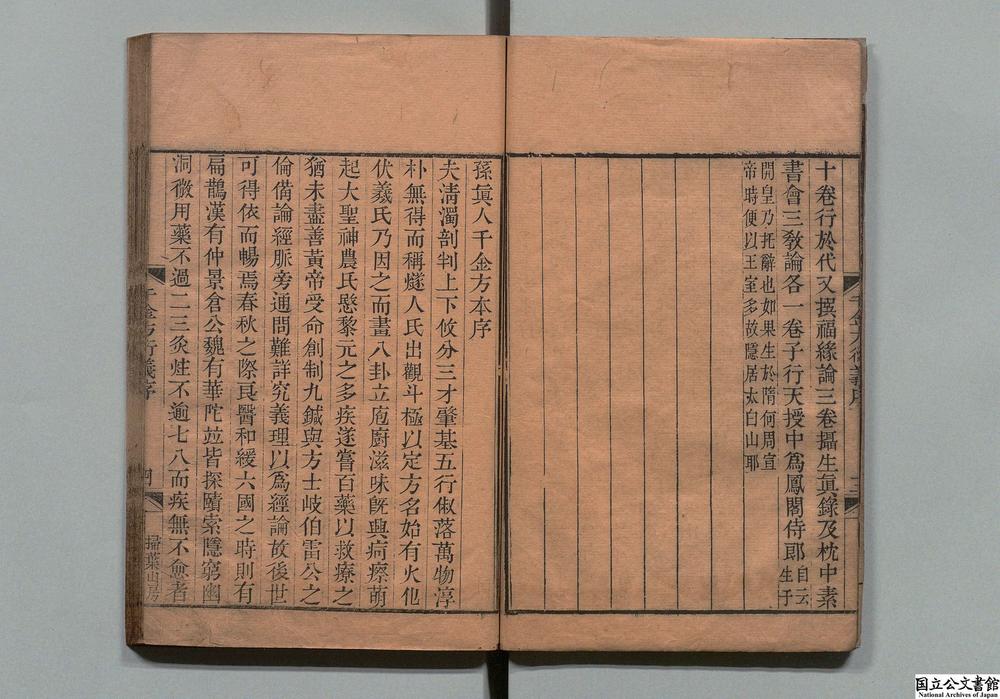 十卷行於代又撰福緣論三卷攝生眞錄及枕中素
書會三敎論各一卷子行天授中爲鳳閣侍郞自云生于
開皇乃托辭也如果生於隋何周宣
帝時便以王室多故隱居太白山耶
孫眞人千金方本序
夫淸濁剖判上下攸分三才肇基五行俶落萬物淳
朴無得而稱燧人氏出觀斗極以定方名始有火化
伏羲氏乃因之而畫八卦立庖廚滋味旣興疴瘵萌
起大聖神農氏愍黎元之多疾遂嘗百藥以救療之
猶未盡善黃帝受命創制九鍼與方士岐伯雷公之
倫備論經脈旁通問難詳究義理以爲經論故後世
可得依而暢焉春秋之際良醫和緩六國之時則有
扁鵲漢有仲景倉公魏有華陀竝皆探賾索隱窮幽
洞微用藥不過二三灸炷不逾七八而疾無不愈者
千金方衍義序
四
掃葉山房
国立公文書館
National Archives of Japan